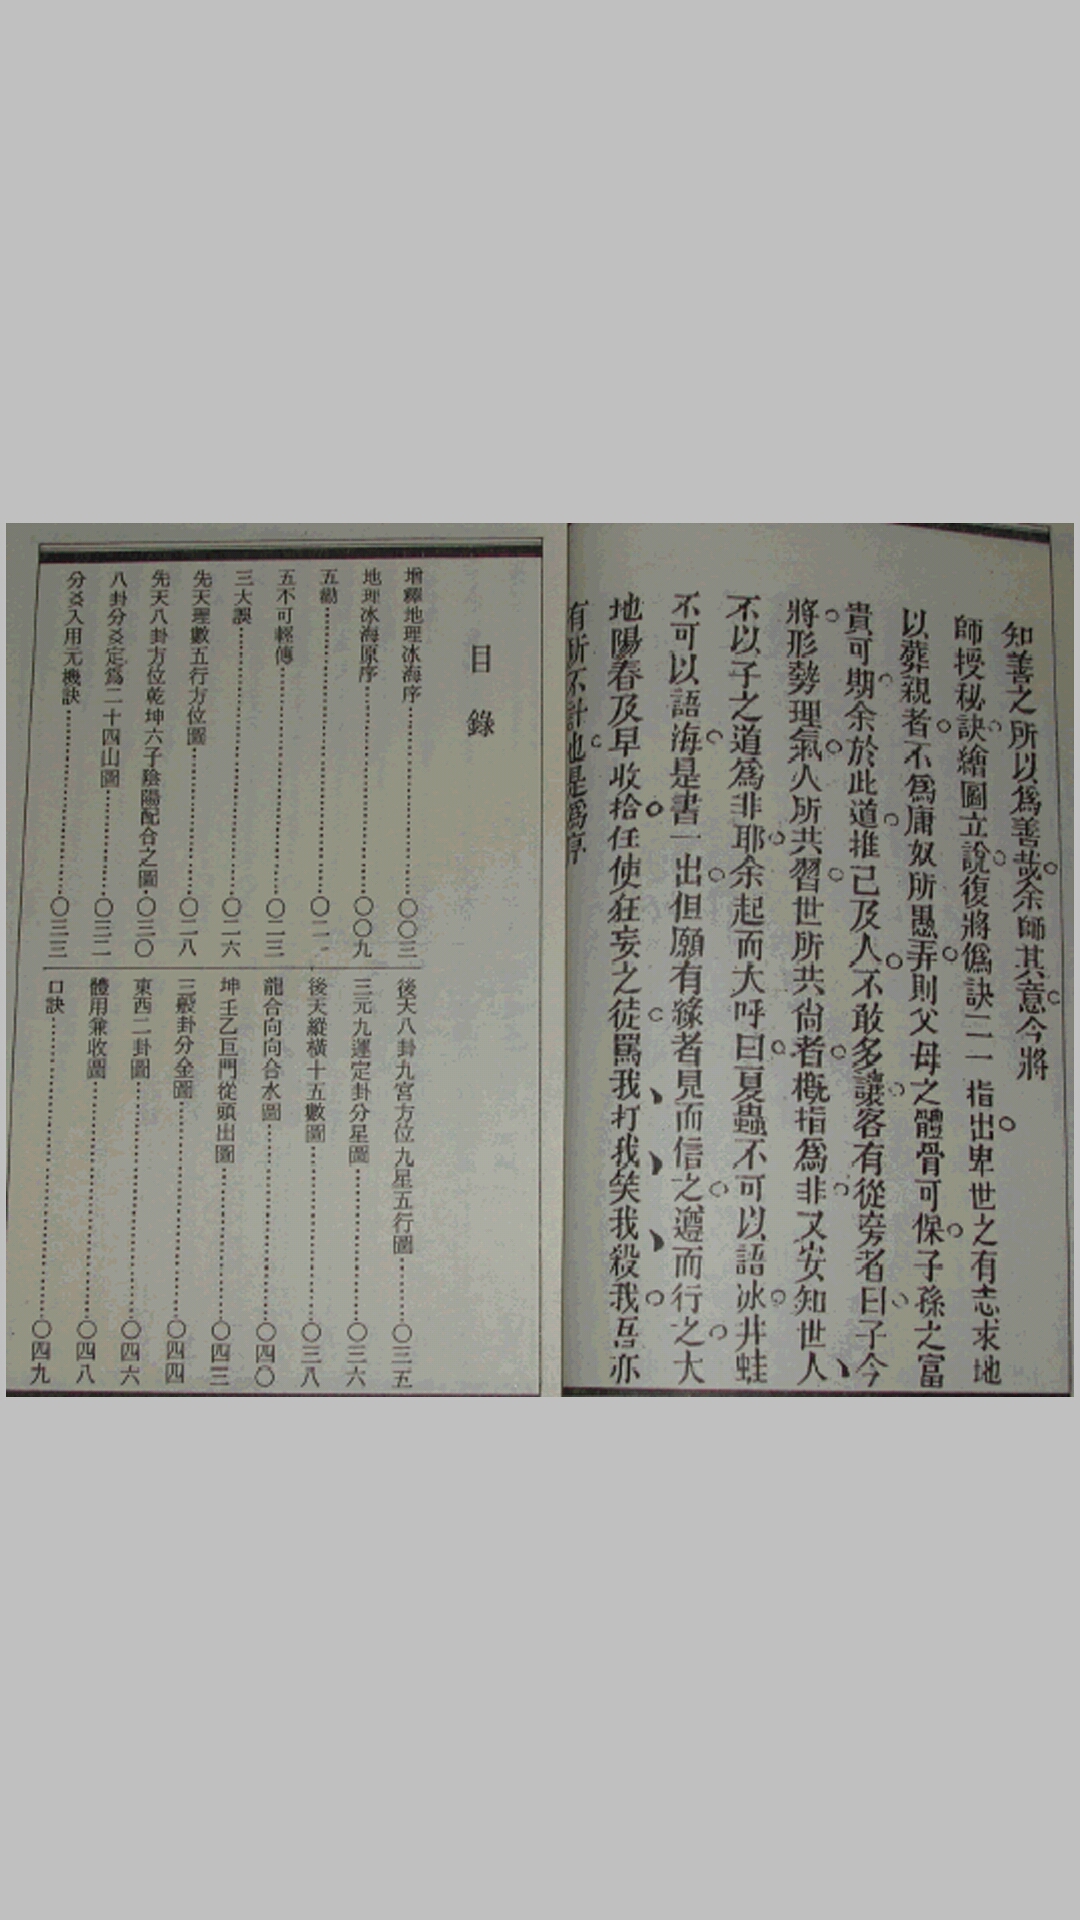 知善之所以爲善哉余師其意今將
師授秘訣繪圖立說復將僞訣一一指出俾世之有志求地
以葬親者不爲庸奴所愚弄則父母之體骨可保子孫之富
貴可期余於此道推己及人不敢多讓客有從旁者曰子今
將形勢理氣人所共習世所共尙者槪指爲非又安知世人
不以子之道爲非耶余起而大呼曰夏蟲不可以語冰井蛙
不可以語海是書一出但願有緣者見而信之遵而行之大
地陽春及早收拾任使狂妄之徒罵我打我笑我殺我吾亦
有所不計也是爲序
目錄
增釋地理冰海序……〇〇三
地理冰海原序……〇〇九
五勸……〇二一
五不可輕傳……〇二三
三大誤……〇二六
先天理數五行方位圖……〇二八
先天八卦方位乾坤六子陰陽配合之圖……〇三〇
八卦分爻定爲二十四山圖……〇三二
分爻入用元機訣……〇三三
後天八卦九宮方位九星五行圖……〇三五
三元九運定卦分星圖……〇三六
後天縱橫十五數圖……〇三八
龍合向向合水圖……〇四〇
坤壬乙巨門從頭出圖……〇四三
三般卦分金圖……〇四四
東西二卦圖……〇四六
體用兼收圖……〇四八
口訣……〇四九